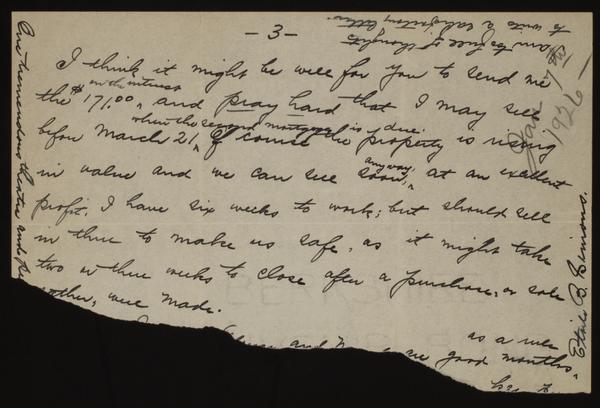 - 3 -
I think it might be well for you to send me
in the interest
the $171.00, and pray hard that I may sell
when the second mortgage is due.
before March 21. Of course the property is rising
anyway
in value and we can sell soon, at an excellent
profit. I have six weeks to work; but should sell
in three to make us safe, as it might take
two or three weeks to close after a purchase, or sale
rather, were made.
as a
and good months,
am too full of thoughts
to write a satisfactory letter
Jan 7th
1926
One tremendous theatre and
Ethile B. Simons.